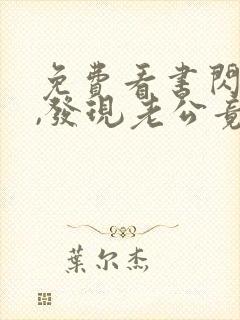 免費看書閃
,發現老公竟
葉尔杰